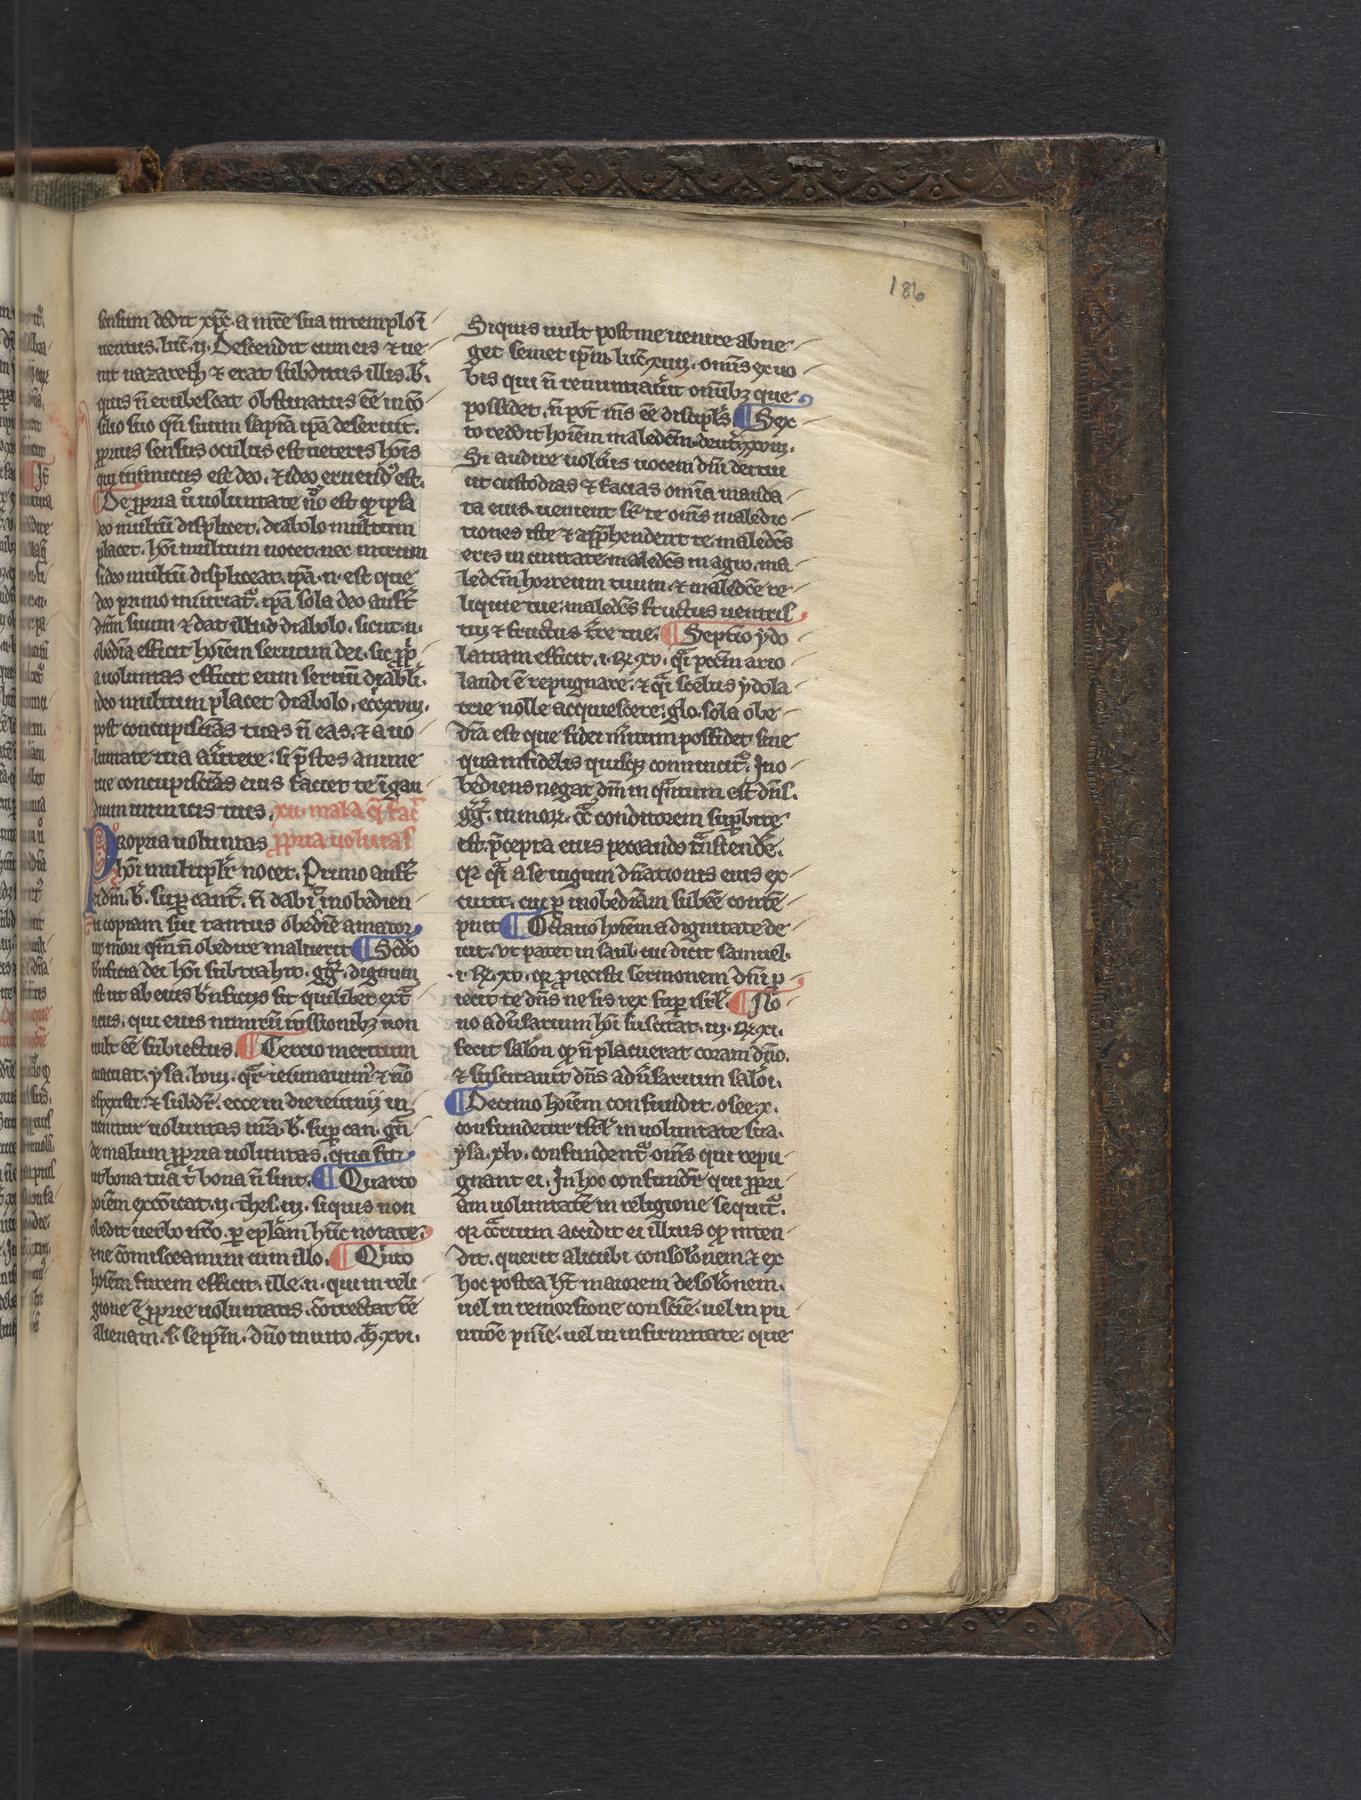 186
sensum dedit xp̄c. a mr̄e sua in templo ī
uentus. luc̄. ij. Descendit cum eis ⁊ ue
nit nazareth ⁊ erat subditus illis. b̄.
quis n̄ erubescat obstinatus eē in cō
silio suo qn̄ suum sapīa ipā deseruit.
ꝓprius sensus oculus est ueteris hōis
qui inimicus est deo. ⁊ ideo eruend᷒ est.
De ꝓpria u̾o uoluntate nō est ꝙ ipsa
deo multū displicet. diabolo multum
placet. hōi multum nocet. nec mirum
si deo multū displiceat. ipā. n. est que
deo primo iniuriat᷒. ipā sola deo aufert
dūm suum ⁊ dat illud diabolo. sicut. n.
obediā efficit hoīem seruum dei. sic ꝓp̄
a uoluntas efficit eum seruū diabli.
ideo multum placet diabolo. ecc̄. xviij.
post concupiscīas tuas n̄ eas. ⁊ a uo
luntate tua au̾tere. si p̄stes anime
tue concupiscīas eius faciet te ī gau
dium inimicis tuis. xii. mala q̄ fac̄
Propria uoluntas ꝓpria uolūtas
hōi multiplr̄ nocet. Primo aufert
ei dm̄. b̄. suꝑ cant̄. n̄ dabit᷒ inobedien
ti copiam sui tantus obediē amator.
ut mori qm̄ n̄ obedire maluerit ¶ Scd̄o
bn̄ficia dei hōi subtrahit. gḡ. dignum
est ut ab eius bn̄ficijs sit quilibet ext᷒
neus. qui eius nimirū iussionibꝫ non
uult eē subiectus. ¶ Tercio meritum
euacuat. ysa. lviij. qr̄e ieiunauim᷒ ⁊ nō
aspexisti. ⁊ subdit̄. ecce in die ieiunij in
uenitur uoluntas ur̄a. b̄. suꝑ can. grā
de malum ꝓpria uoluntas. qua fit
ut bona tua t᷒ bona n̄ sint. ¶ Quarto
hoīem excōicat. ij. thes. iij. si quis non
obedit uerbo nr̄o. ꝑ epl̄am hūc notate.
⁊ ne cōmisceamini cum illo. ¶ Qūto
hoīem furem efficit. ille. n. qui in reli
gione ē ꝓprie uoluntatis. cōtrectat rē
alienam. s. seip̄m. dn̄o inuito. M̄. xvi.
Si quis uult post me uenire abne
get semet ip̄m. luc̄. xiiij. om̄s ex uo
bis qui n̄ renuntiau̾it om̄ibꝫ que
possidet. n̄ pot̄ m̄s eē discipl̄s ¶ Sex
to reddit hoīem maledc̄m. deut̄. xxviij.
Si audire nolu̾is uocem dn̄i dei tui
ut custodias ⁊ facias om̄ia manda
ta eius. uenient sr̄ te om̄s maledic
tiones iste ⁊ app̄hendent te. maledc̄s
eris in ciuitate. maledc̄s in agro. ma
ledc̄m horreum tuum. ⁊ maledc̄e re
liquie tue. maledc̄s fructus uentris
tui ⁊ fructus tr̄e tue. ¶ Septīo ydo
latram efficit. i. Rꝫ. xv. q̄i pecc̄m ario
landi ē repugnare. ⁊ q̄i scelus ydola
trie nolle acquiescere. glo. sola obe
dīa est que fidei m̾itum possidet sine
qua infidelis quisqꝫ conuincit᷒. Ino
bediens negat dm̄ in q̄ntum est dn̄s.
gḡ. in mor. cō conditorem suꝑbire
est. p̄cepta eius peccando trāscende̾.
qꝛ q̄i a se iugum dn̄ationis eius ex
cutit. cui ꝑ inobediām subee̾ contē
pnit ¶ Octauo hoīem a dignitate de
icit. ut patet in saul. cui dicit samuel.
.i. Rꝫ. xv. qꝛ ꝓiecisti sermonem dn̄i ꝓ
iecit te dn̄s ne sis rex suꝑ isr̄l. ¶ No
no adu̾sarium hōi suscitat. iij. Rꝫ. xi.
fecit salōn ꝙ n̄ placuerat coram dn̄o.
⁊ suscitauit dn̄s adu̾sarium salōi.
¶ Decimo hoīem confundit. osee. x.
confundetur isr̄l in uoluntate sua.
ysa. xlv. confundent᷒ om̄s qui repu
gnant ei. In hoc confundr̄ qui ꝓpri
am uoluntatē in religione sequit᷒.
qꝛ cōtrium accidit ei illius ꝙ inten
dit. querit alicubi consolōnem. ⁊ ex
hoc postea hēt maiorem desolōnem.
uel in remorsione consciē. uel in pu
nitōe pn̄ie. uel in infirmitate. que